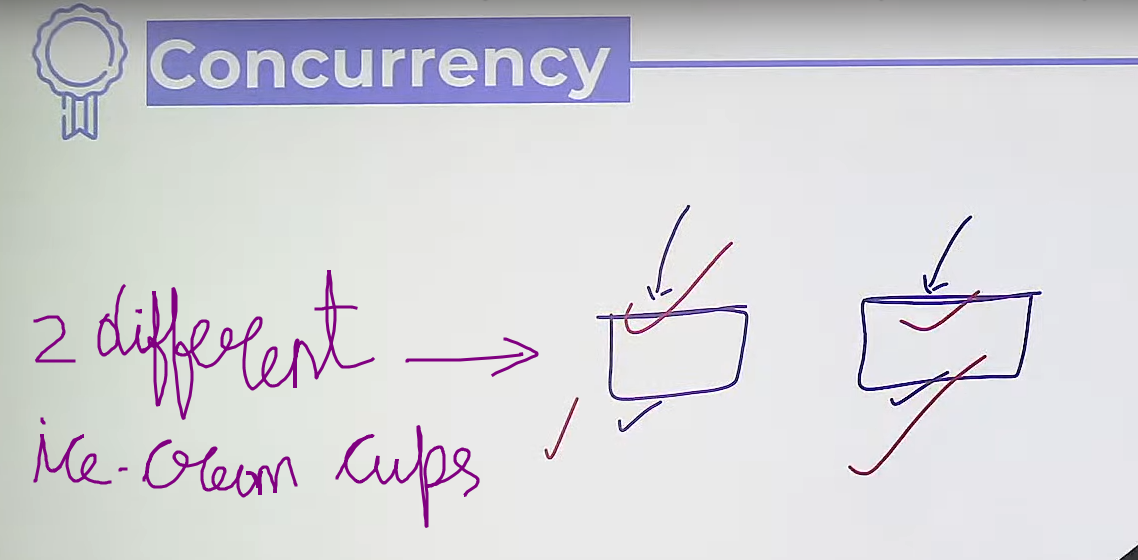 Concurrency
2 different
ice-cream cups